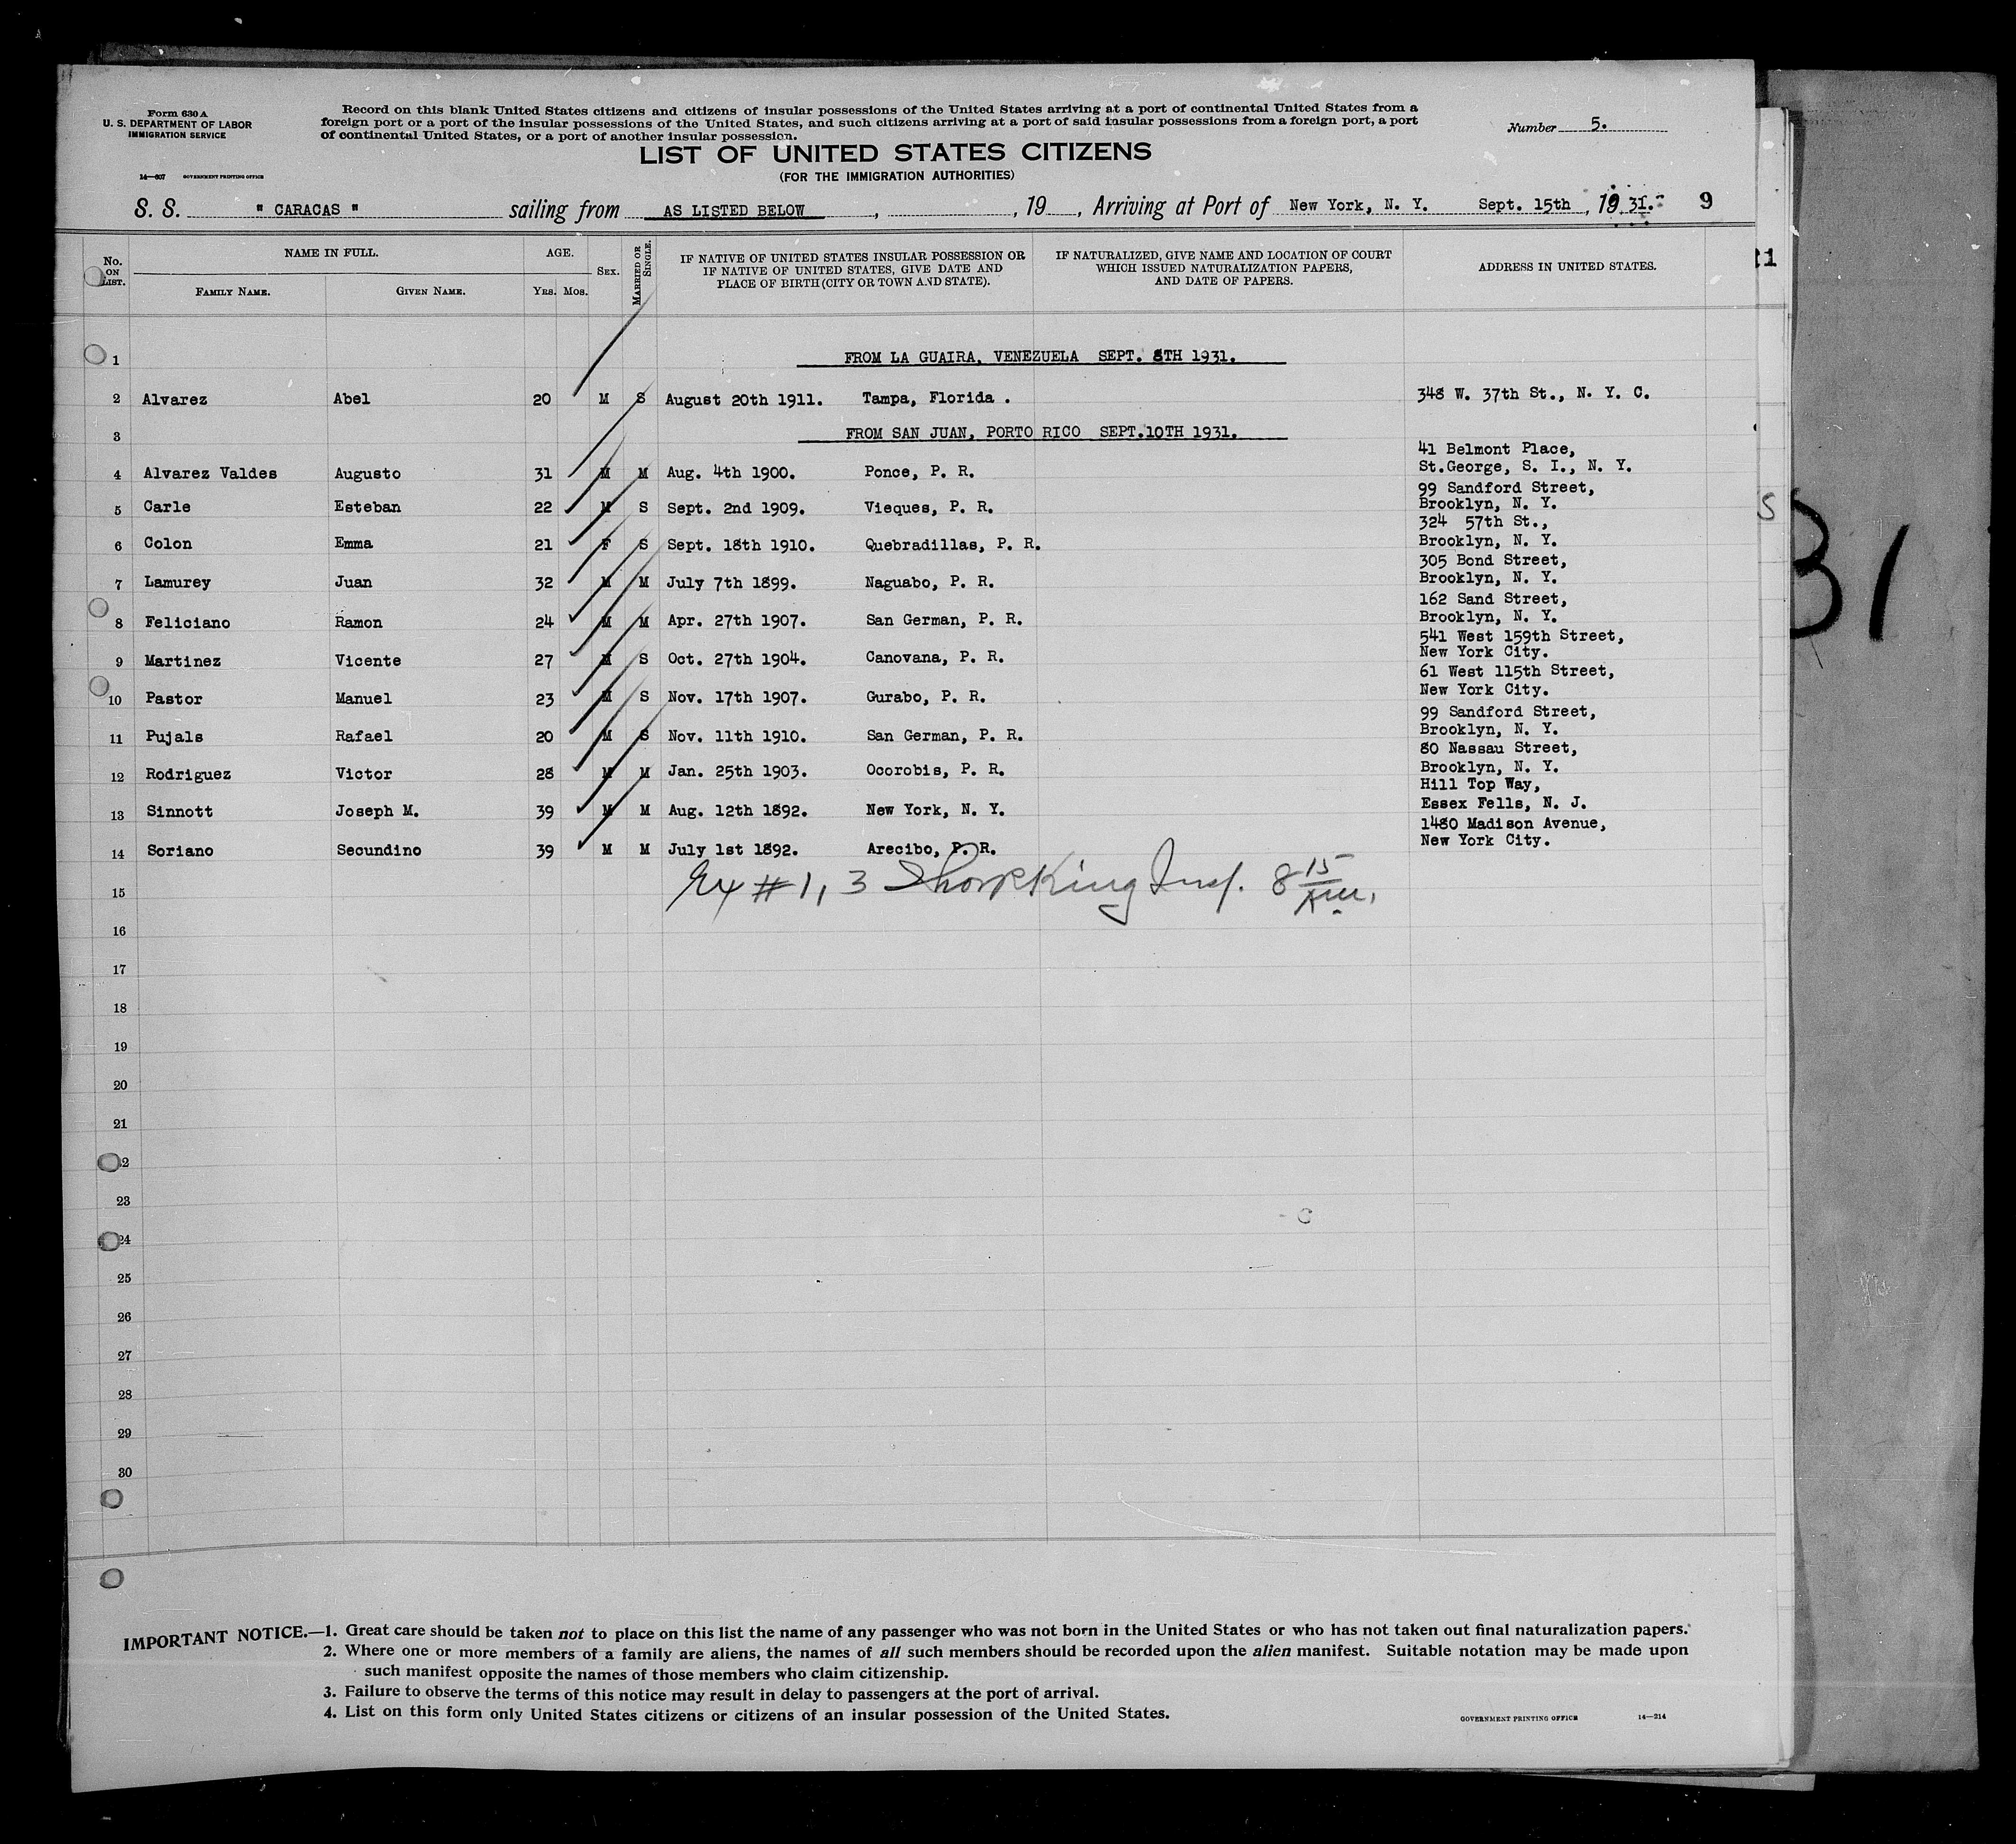 Form 630 A
U. S. DEPARTMENT OF LABOR
IMMIGRATION SERVICE
14—607 GOVERNMENT PRINTING OFFICE
Record on this blank United States citizens and citizens of insular possessions of the United States arriving at a port of continental United States from a
foreign port or a port of the insular possessions of the United States, and such citizens arriving at a port of said insular possessions from a foreign port, a port
of continental United States, or a port of another insular possession.
Number 5.
LIST OF UNITED STATES CITIZENS
(FOR THE IMMIGRATION AUTHORITIES)
S. S. " CARACAS " sailing from AS LISTED BELOW , , 19 , Arriving at Port of New York, N. Y. Sept. 15th , 19 31. 9
No. ON LIST. NAME IN FULL. AGE. SEX. MARRIED OR SINGLE. IF NATIVE OF UNITED STATES INSULAR POSSESSION OR IF NATIVE OF UNITED STATES, GIVE DATE AND PLACE OF BIRTH (CITY OR TOWN AND STATE). IF NATURALIZED, GIVE NAME AND LOCATION OF COURT WHICH ISSUED NATURALIZATION PAPERS, AND DATE OF PAPERS. ADDRESS IN UNITED STATES.
FAMILY NAME. GIVEN NAME. YRS. MOS.
1 FROM LA GUAIRA, VENEZUELA SEPT. 8TH 1931.
2 Alvarez Abel 20 M S August 20th 1911. Tampa, Florida . 348 W. 37th St., N. Y. C.
3 FROM SAN JUAN, PORTO RICO SEPT.10TH 1931.
41 Belmont Place,
4 Alvarez Valdes Augusto 31 M M Aug. 4th 1900. Ponce, P. R. St.George, S. I., N. Y.
99 Sandford Street,
5 Carle Esteban 22 M S Sept. 2nd 1909. Vieques, P. R. Brooklyn, N. Y.
324 57th St.,
6 Colon Emma 21 F S Sept. 18th 1910. Quebradillas, P. R. Brooklyn, N. Y.
305 Bond Street,
7 Lamurey Juan 32 M M July 7th 1899. Naguabo, P. R. Brooklyn, N. Y.
162 Sand Street,
8 Feliciano Ramon 24 M M Apr. 27th 1907. San German, P. R. Brooklyn, N. Y.
541 West 159th Street,
9 Martinez Vicente 27 M S Oct. 27th 1904. Canovana, P. R. New York City.
61 West 115th Street,
10 Pastor Manuel 23 M S Nov. 17th 1907. Gurabo, P. R. New York City.
99 Sandford Street,
11 Pujals Rafael 20 M S Nov. 11th 1910. San German, P. R. Brooklyn, N. Y.
80 Nassau Street,
12 Rodriguez Victor 28 M M Jan. 25th 1903. Ocorobis, P. R. Brooklyn, N. Y.
Hill Top Way,
13 Sinnott Joseph M. 39 M M Aug. 12th 1892. New York, N. Y. Essex Fells, N. J.
1480 Madison Avenue,
14 Soriano Secundino 39 M M July 1st 1892. Arecibo, P. R. New York City.
15 Ex # 1, 3 King Insp. 8 15 AM.
16
17
18
19
20
21
22
23
24
25
26
27
28
29
30
IMPORTANT NOTICE.—1. Great care should be taken not to place on this list the name of any passenger who was not born in the United States or who has not taken out final naturalization papers.
2. Where one or more members of a family are aliens, the names of all such members should be recorded upon the alien manifest. Suitable notation may be made upon
such manifest opposite the names of those members who claim citizenship.
3. Failure to observe the terms of this notice may result in delay to passengers at the port of arrival.
4. List on this form only United States citizens or citizens of an insular possession of the United States.
GOVERNMENT PRINTING OFFICE 14—214
31